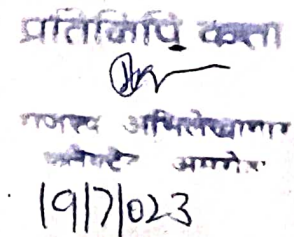 प्रतिलिपि कर्ता
राजस्व अभिलेखागार
कलेक्ट्रेट अजमेर
19/7/023